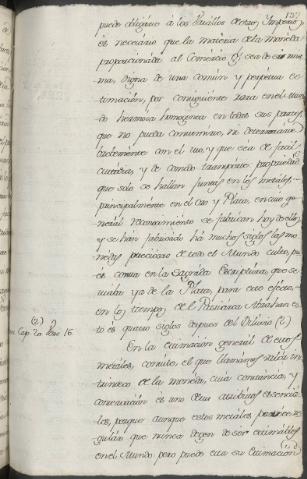 puede obligarse a los Pueblos
es necesario que la materia de la Moneda
proporcionada al Comercio sea de
ma, digna de una comun, y perpetua es
timacion, por consiguiente rara en el
hermosa homogenea en todas sus partes,
que no pueda consumirse, ni deteriorarse
con el uso, y que sea de facil
y de comodo transporte propiedades
que solo se hallan juntas en los metales
principalmente en el Oro, y Plata, en cuyo ge
neral conocimiento se fabrican hoy
y se han fabricado ha muchos siglos las mo
nedas preciosas de todo el Mundo culto, pu
es consta en la Sagrada Escriptura, que se
usaba ya de la Plata, para este efecto
en los tiempos del Patriarca Abraham es
to es quatro siglos despues del Diluvio (2)
(2)
Cap. 16
En la estimacion general de estos
metales, consiste, el que llamamos valor in
trinseco de la moneda, cuia constancia, y
conservacion es uno de sus atributos esencia
les, porque aunque estos metales
gulan que nunca dejen de ser estimables
en el Mundo pero puede esta su estimacion